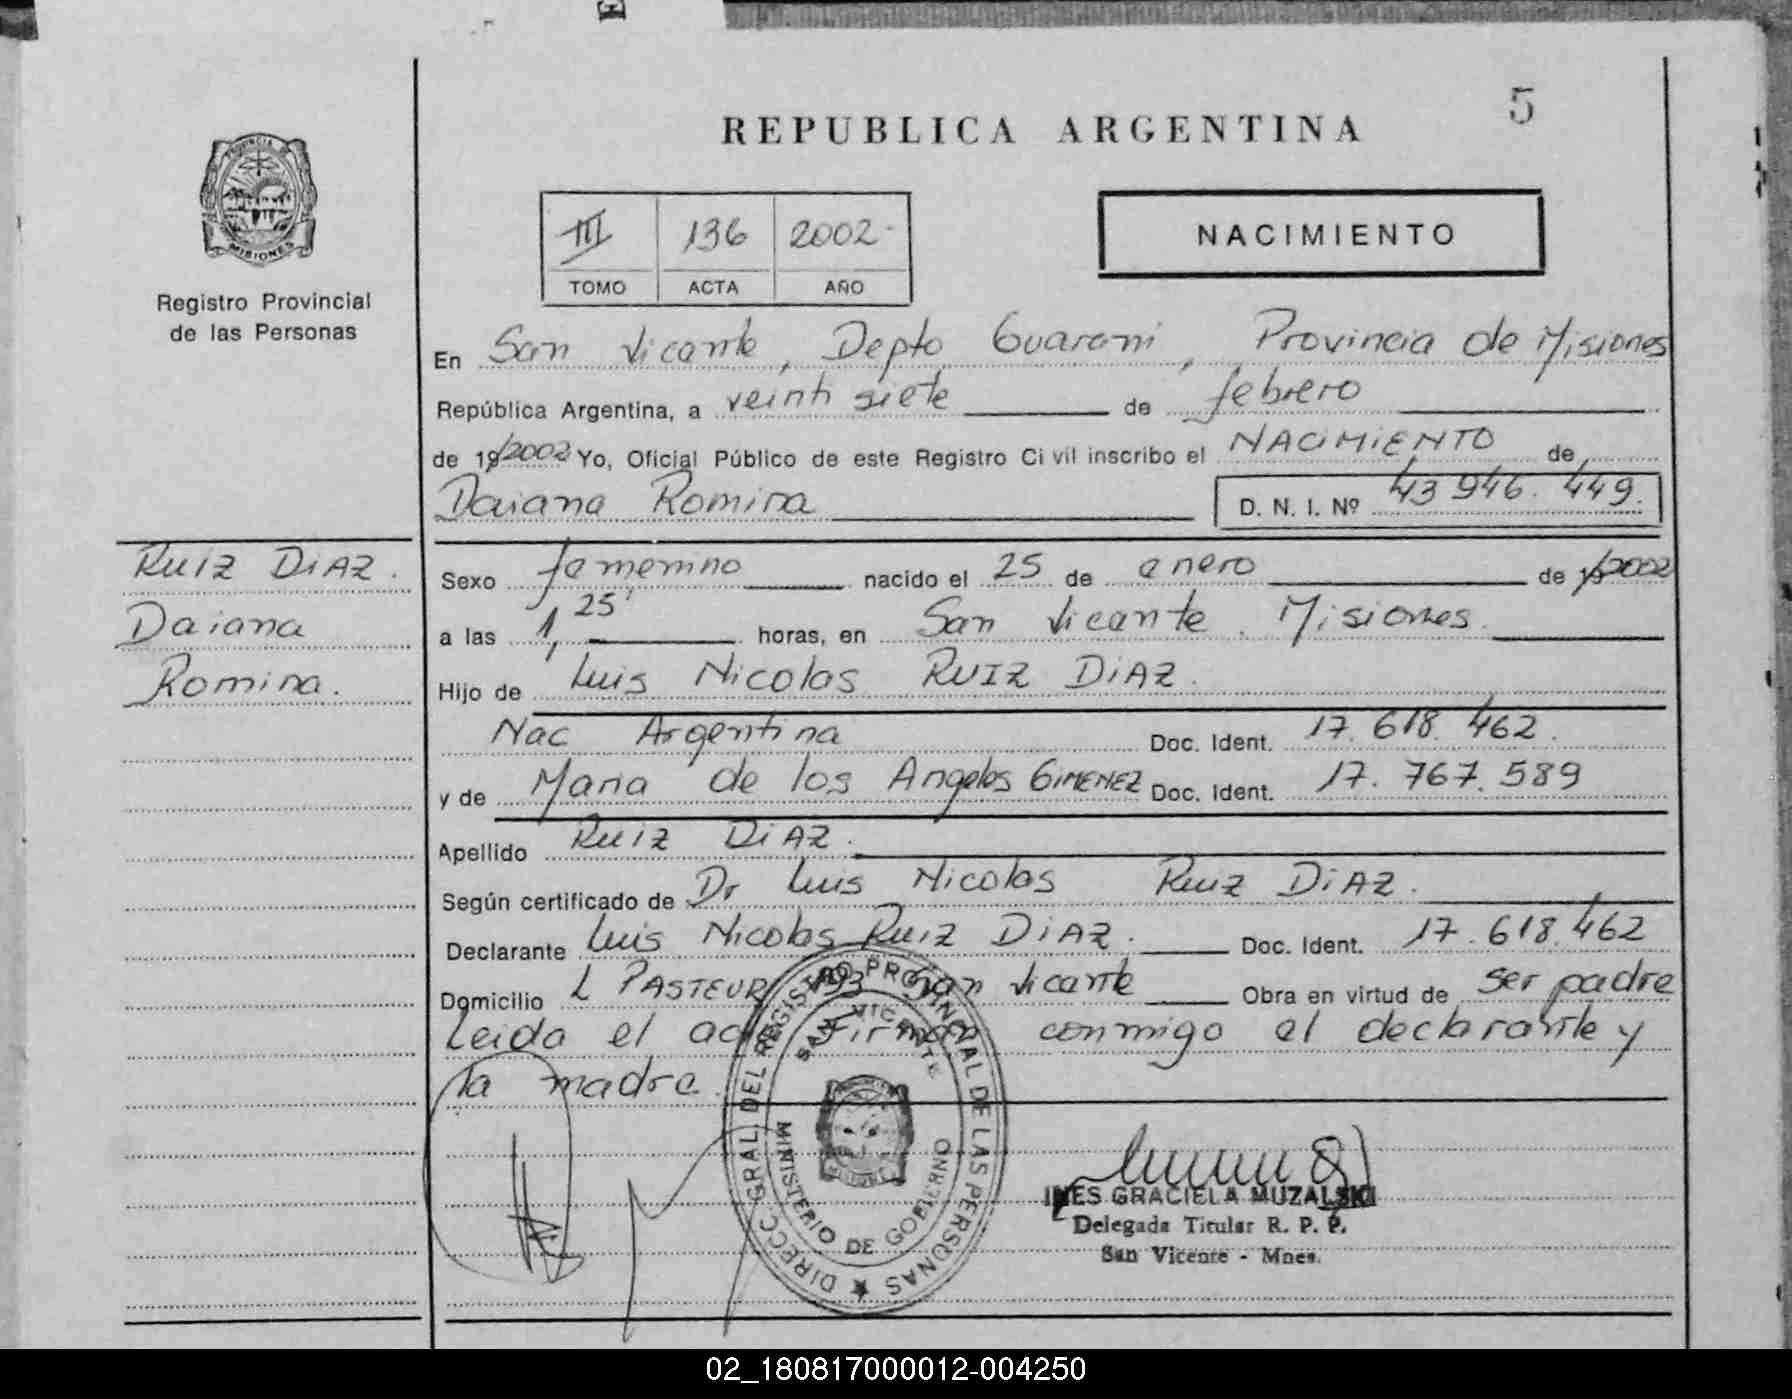 5
REPUBLICA ARGENTINA
PROVINCIA DE
MISIONES
Registro Provincial
de las Personas
III 136 2002
TOMO ACTA AÑO
NACIMIENTO
En San Vicente, Depto Guarani, Provincia de Misiones
República Argentina, a veinti siete de febrero
de 19/2002 Yo, Oficial Público de este Registro Civil inscribo el NACIMIENTO de
Daiana Romina D. N. I. Nº 43 946. 449.
RUIZ DIAZ.
Daiana
Romina.
Sexo femenino nacido el 25 de enero de 19/2002
a las 1,25' horas, en San Vicente. Misiones.
Hijo de Luis Nicolas RUIZ DIAZ.
Nac Argentina Doc. Ident. 17. 618. 462.
y de Maria de los Angeles GIMENEZ Doc. Ident. 17. 767. 589
Apellido RUIZ DIAZ.
Según certificado de Dr Luis Nicolas Ruiz DIAZ.
Declarante Luis Nicolas Ruiz DIAZ. Doc. Ident. 17. 618. 462
Domicilio L PASTEUR 193 San Vicente Obra en virtud de ser padre
Leida el acta Firman conmigo el declarante y
la madre.
DIRECC. GRAL. DEL REGISTRO PROVINCIAL DE LAS PERSONAS
SAN VICENTE
MINISTERIO DE GOBIERNO
INES GRACIELA MUZALSKI
Delegada Titular R. P. P.
San Vicente - Mnes.
02_180817000012-004250